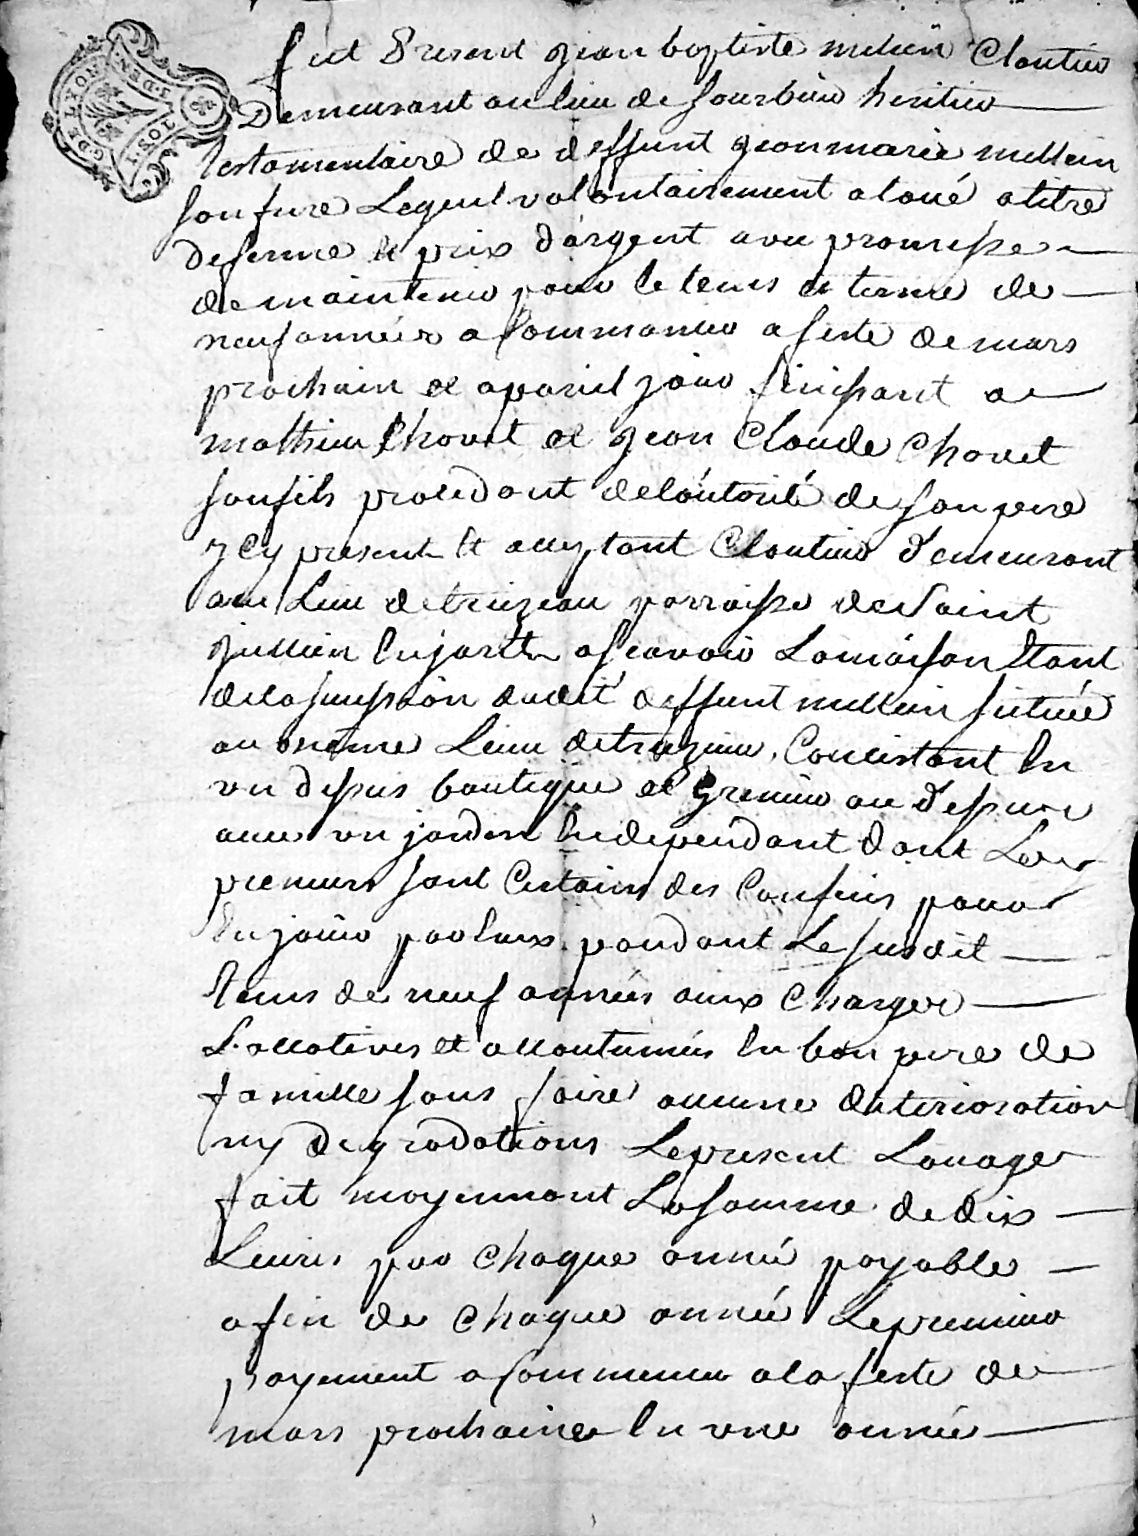 G DE LYON
fut present jean baptiste mellein Cloutier
Demeurant au lieu de heritier
testamentaire de deffunt jean marie mellein
son frere Lequel volontairement a loué a titre
de ferme et prix d'argent avec promesse
de maintenir pour le tems et terme de
neuf années a Commancer a feste de mars
prochain et a pareil jour finissant a
mathieu Chovet et jean Claude Chovet
son fils procedant de l'autorité de son pere
ycy present et acceptant Cloutier demeurant
au Lieu de parroisse de Saint
jullien en jarest a scavoir La maison Etant
de la sucession dudit deffunt mellein situeé
au meme Lieu Concistant En
un dessus boutique et grenier au dessus
avec un jardin Independant dont Les
preneurs sont Certains des Confins pour
En jouir par Eux pendant Le susdit
tems de neuf années aux Charges
Locatives et accoutumées En bon pere de
famille sans faire aucune deterioration
ny degradations Le present Louage
fait moyennant La somme de dix
Livres par Chaque année payable
a fin de Chaque année Le premier
payement a Commencer a la feste de
mars prochaine En une année